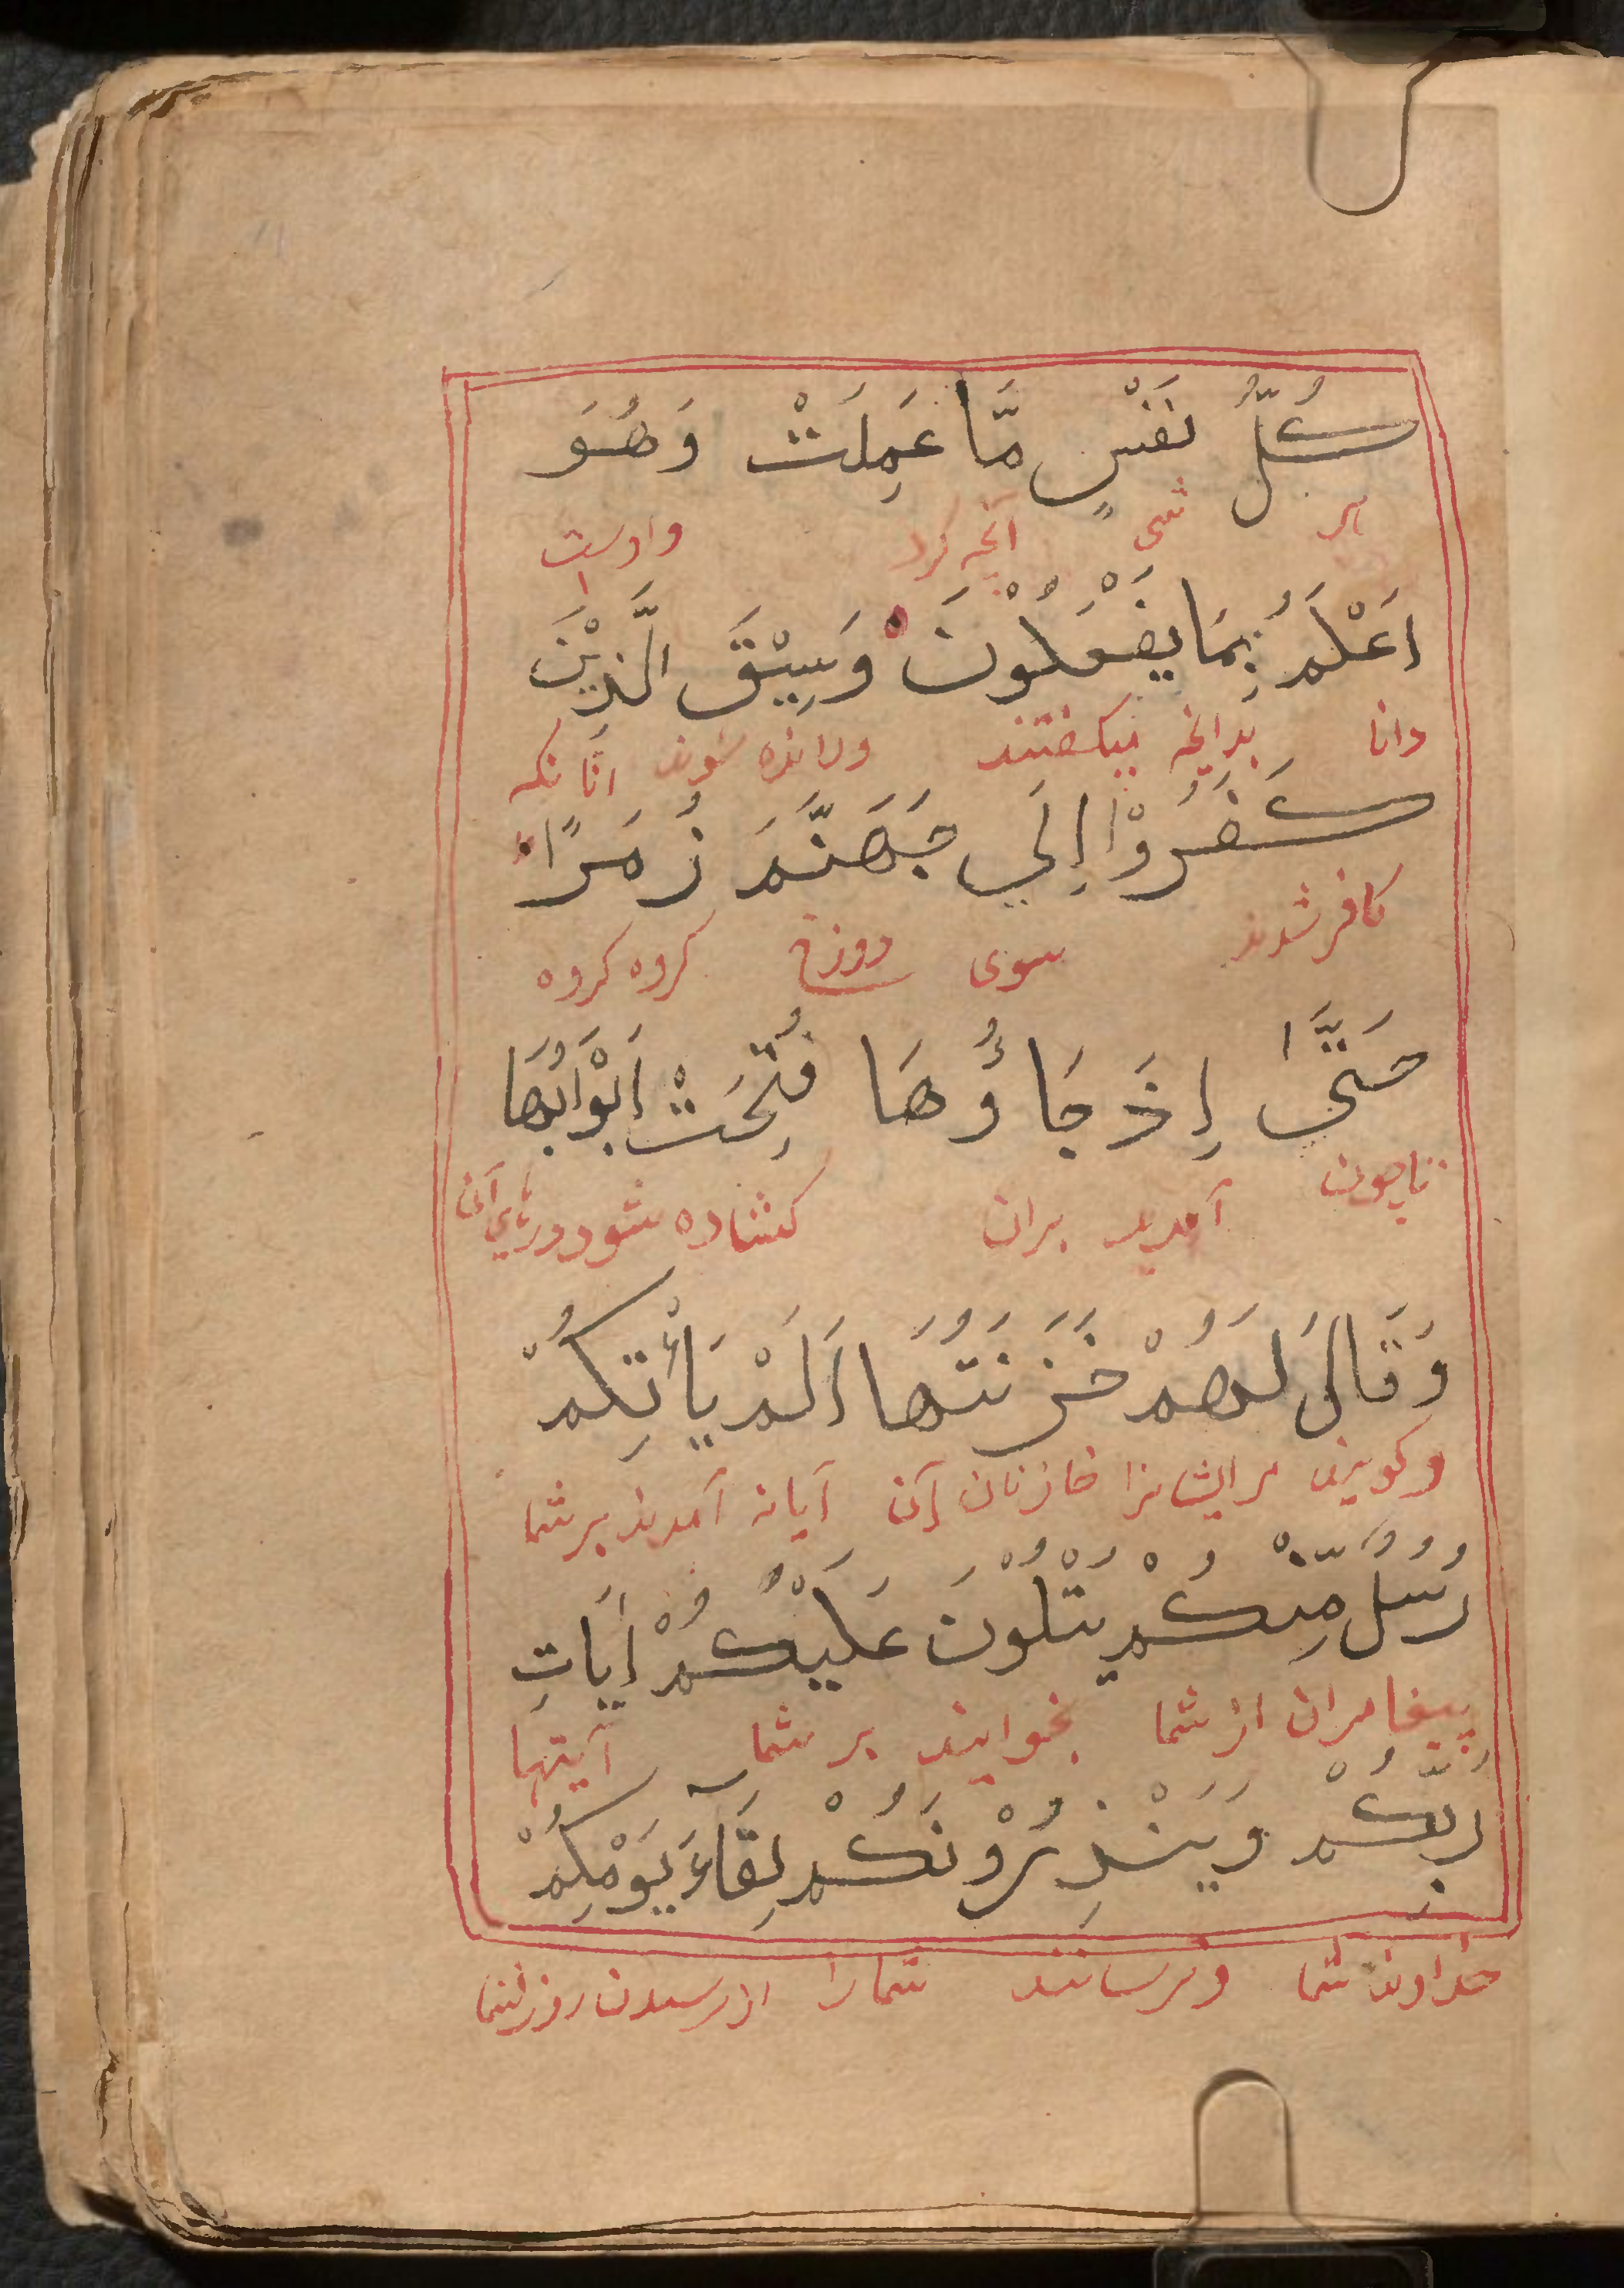 كُلُّ نَفْسٍ مَّا عَمِلَتْ وَهُوَ
هر آنچه کرد واوست
اَعْلَمُ بِمَا يَفْعَلُوْنَ وَسِيْقَ الَّذِيْنَ
دانا بدانچه میکفتند ورانده شوند آنانکه
كَفَرُوْا اِلَي جَهَنَّمَ زُمَرًا
کافر شدند سوی دوزخ کروه کروه
حَتَّىٰ اِذَ جَاؤُهَا فُتِحَتْ اَبْوَابُهَا
تاچون آمدند بران کشاده شود درهای آن
وَقَالَ لَهُمْ خَزَنَتُهَا اَلَمْ يَأْتِكُمْ
وکویند مر ایشانرا خازنان آن آیا نه آمدند بر شما
رُسُلٌ مِّنْكُمْ يَتْلُوْنَ عَلَيْكُمْ اٰيَاتِ
پیغامران از شما بخوانند بر شما آیتها
رَبِّكُمْ وَيَنْذِرُوْنَكُمْ لِقَآءَ يَوْمِكُمْ
خداوند شما وترسانند شما را از رسیدن روز شما